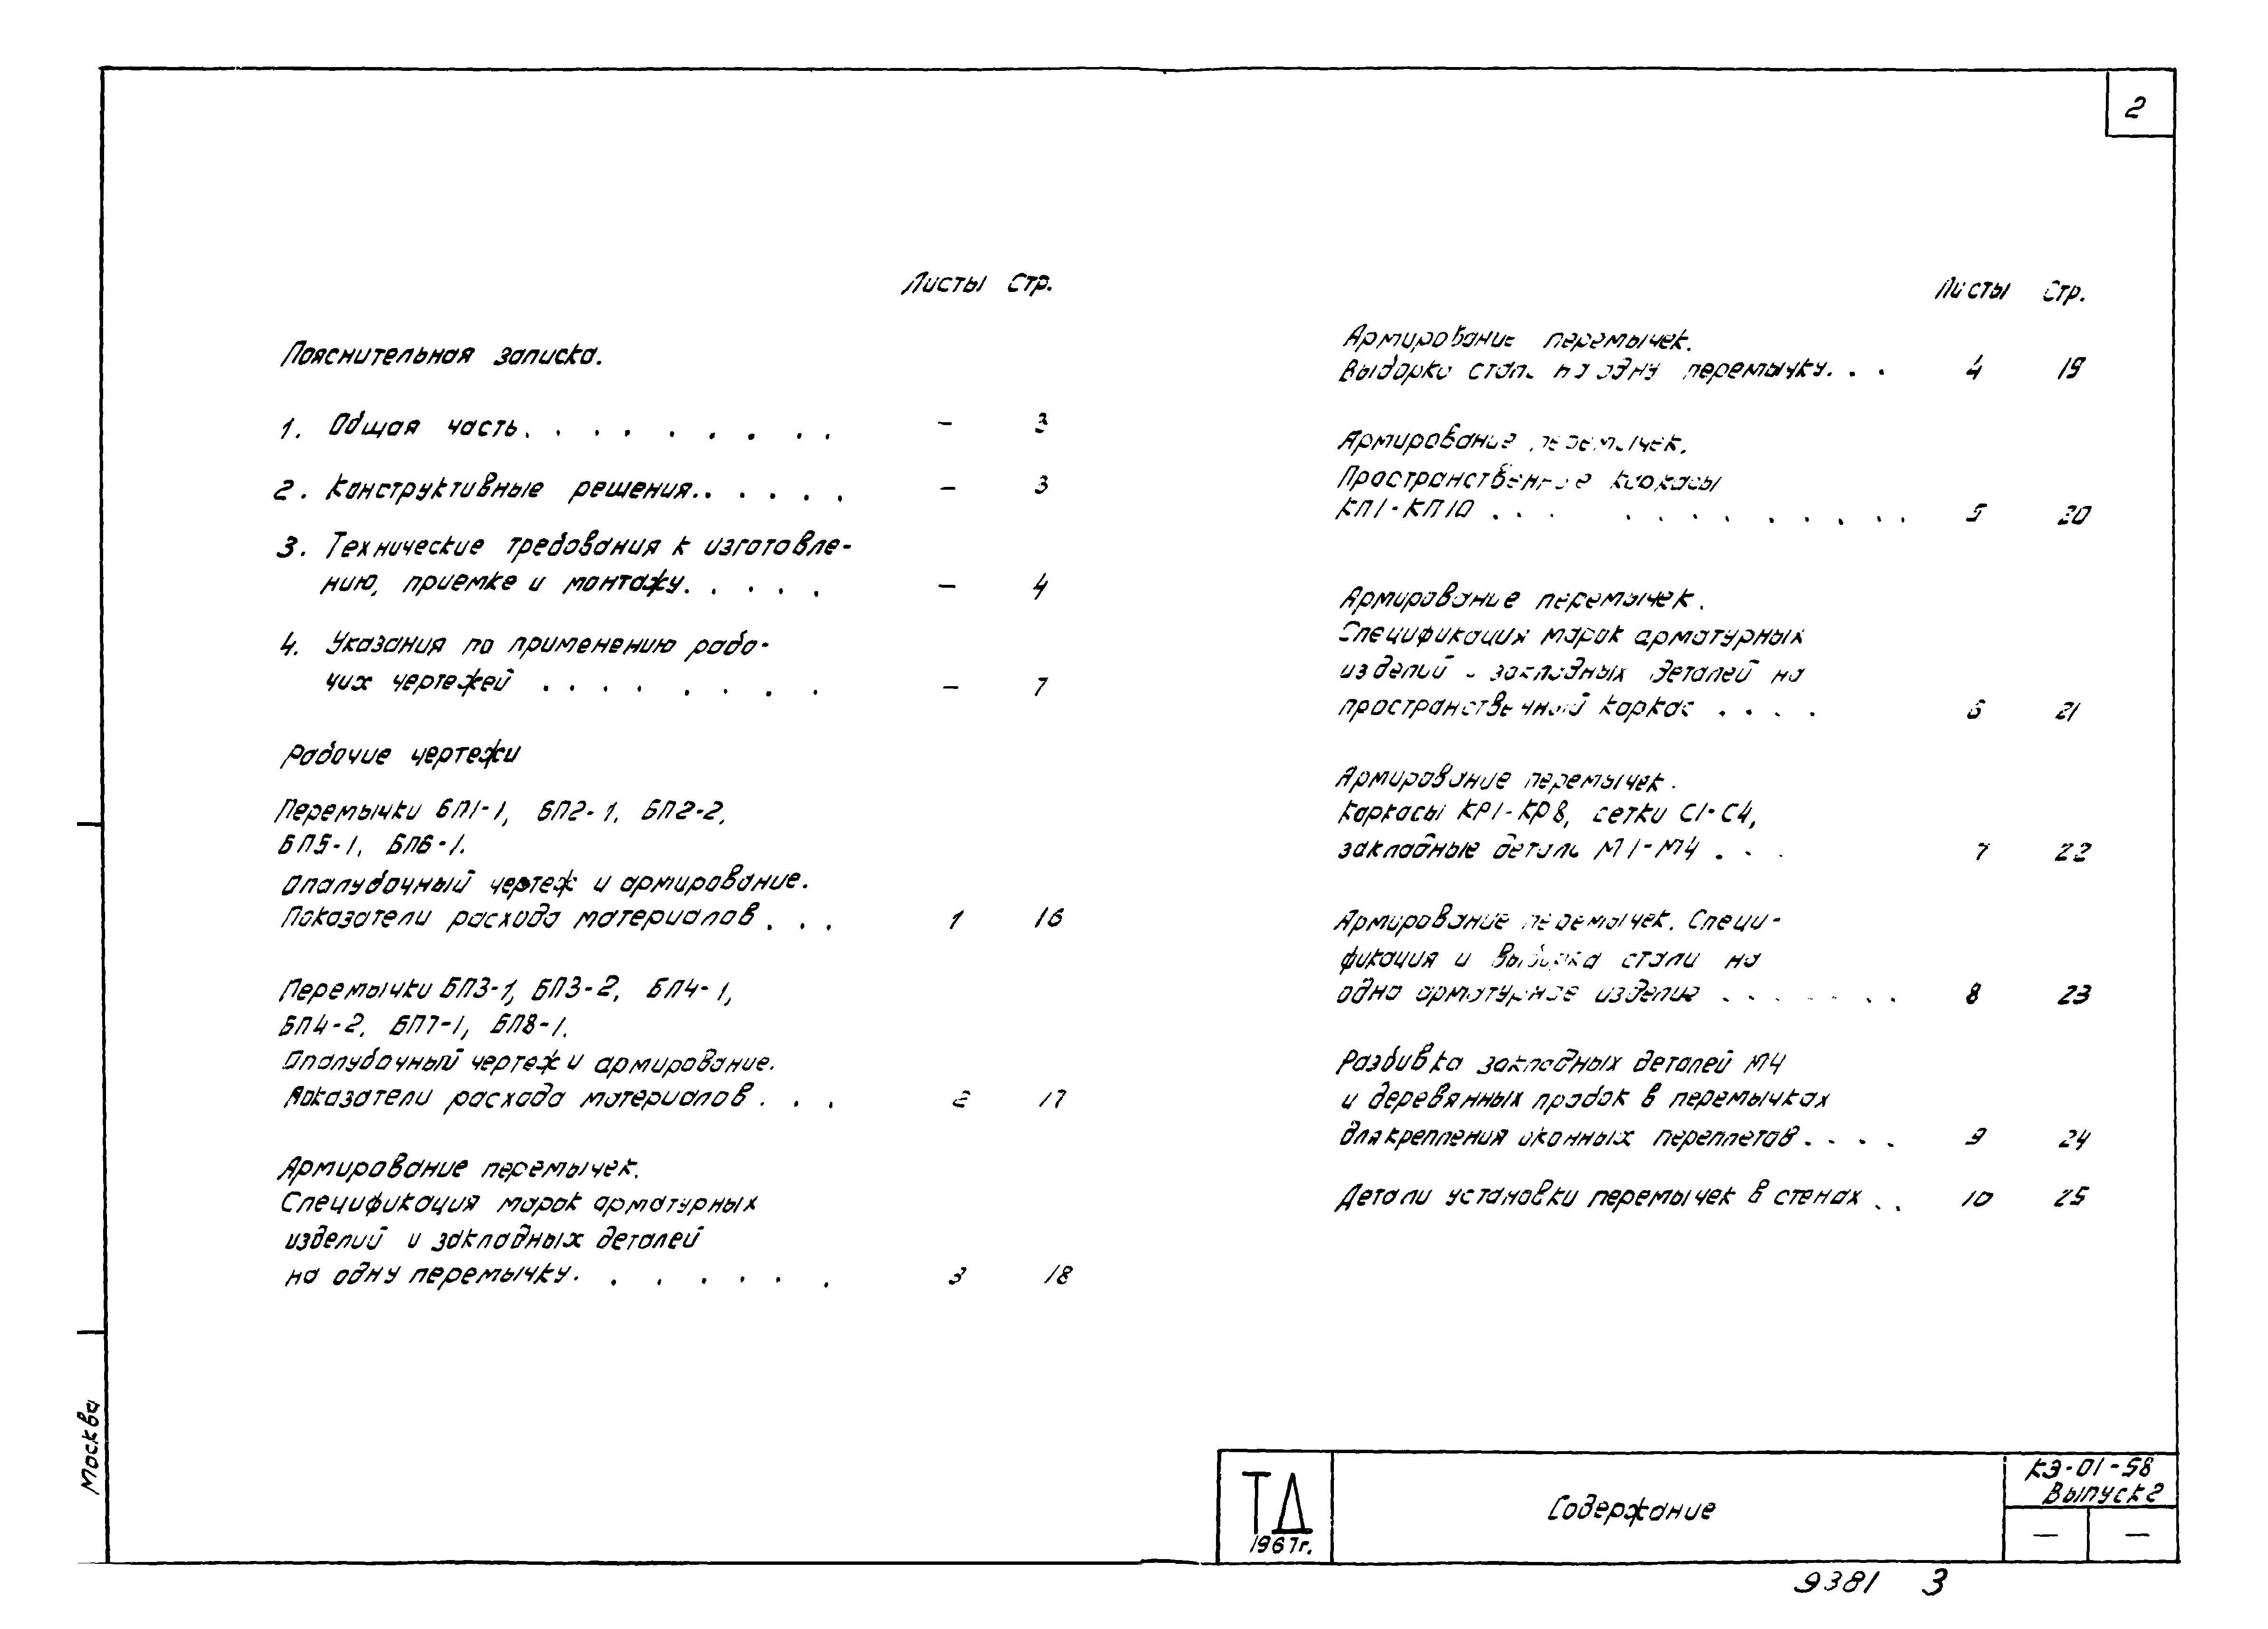 2
Листы Стр.
Пояснительная записка.
1. Общая часть. . . . . . . . . . — 3
2. Конструктивные решения. . . . . . — 3
3. Технические требования к изготовле-
нию, приемке и монтажу. . . . . — 4
4. Указания по применению рабо-
чих чертежей . . . . . . . . . — 7
Рабочие чертежи
Перемычки БП1-1, БП2-1, БП2-2,
БП5-1, БП6-1.
Опалубочный чертеж и армирование.
Показатели расхода материалов . . . 1 16
Перемычки БП3-1, БП3-2, БП4-1,
БП4-2, БП7-1, БП8-1.
Опалубочный чертеж и армирование.
Показатели расхода материалов . . . 2 17
Армирование перемычек.
Спецификация марок арматурных
изделий и закладных деталей
на одну перемычку. . . . . . . 3 18
Листы Стр.
Армирование перемычек.
Выборка стали на одну перемычку. . . 4 19
Армирование перемычек.
Пространственные каркасы
КП1-КП10 . . . . . . . . . . . . 5 20
Армирование перемычек.
Спецификация марок арматурных
изделий и закладных деталей на
пространственный каркас . . . . 6 21
Армирование перемычек.
Каркасы КР1-КР8, сетки С1-С4,
закладные детали М1-М4 . . . 7 22
Армирование перемычек. Специ-
фикация и выборка стали на
одно арматурное изделие . . . . . . . 8 23
Разбивка закладных деталей М4
и деревянных пробок в перемычках
для крепления оконных переплетов . . . . 9 24
Детали установки перемычек в стенах . . 10 25
Москва
ТД
1967г.
Содержание
КЭ-01-58
Выпуск 2
— —
9381 3